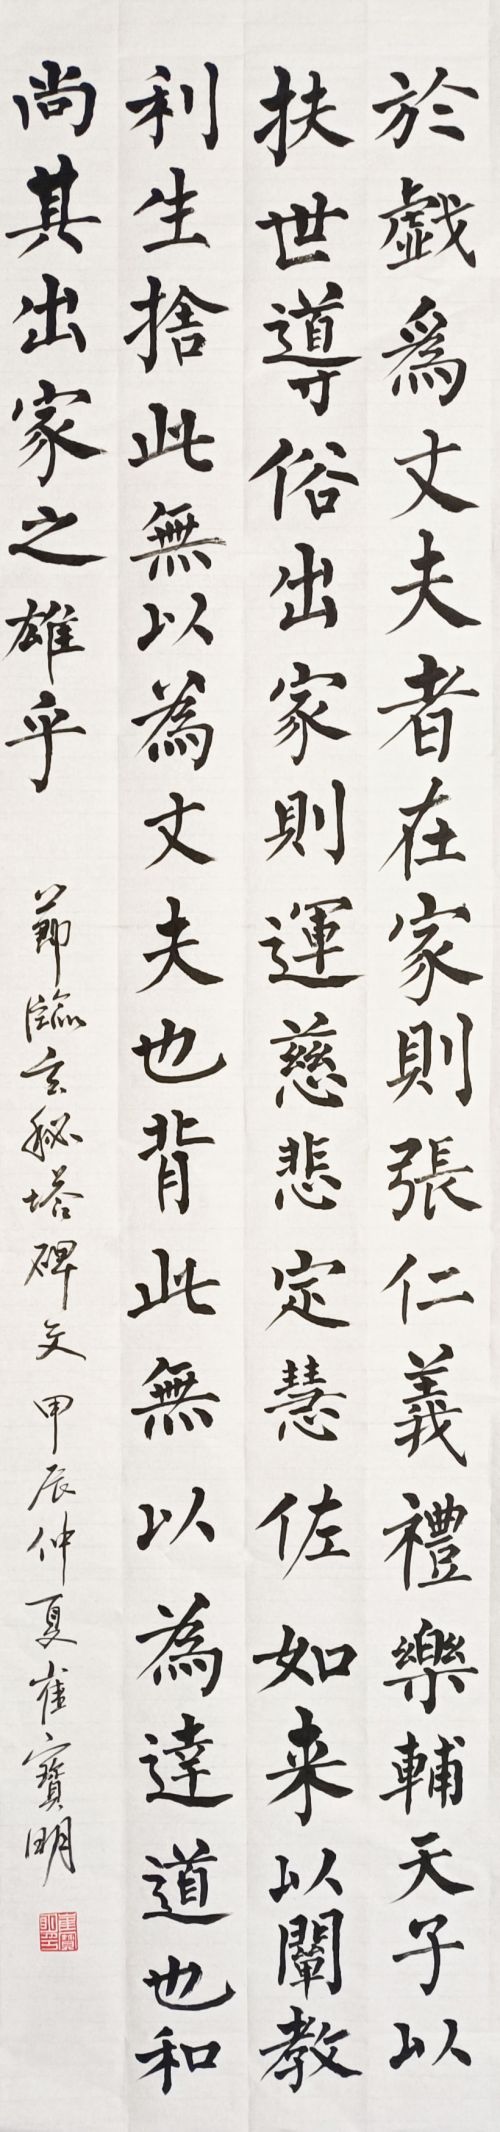 於戲為丈夫者在家則張仁義禮樂輔天子以
扶世導俗出家則運慈悲定慧佐如来以闡教
利生捨此無以為丈夫也背此無以為達道也和
尚其出家之雄乎
節臨玄秘塔碑文甲辰仲夏崔寶明